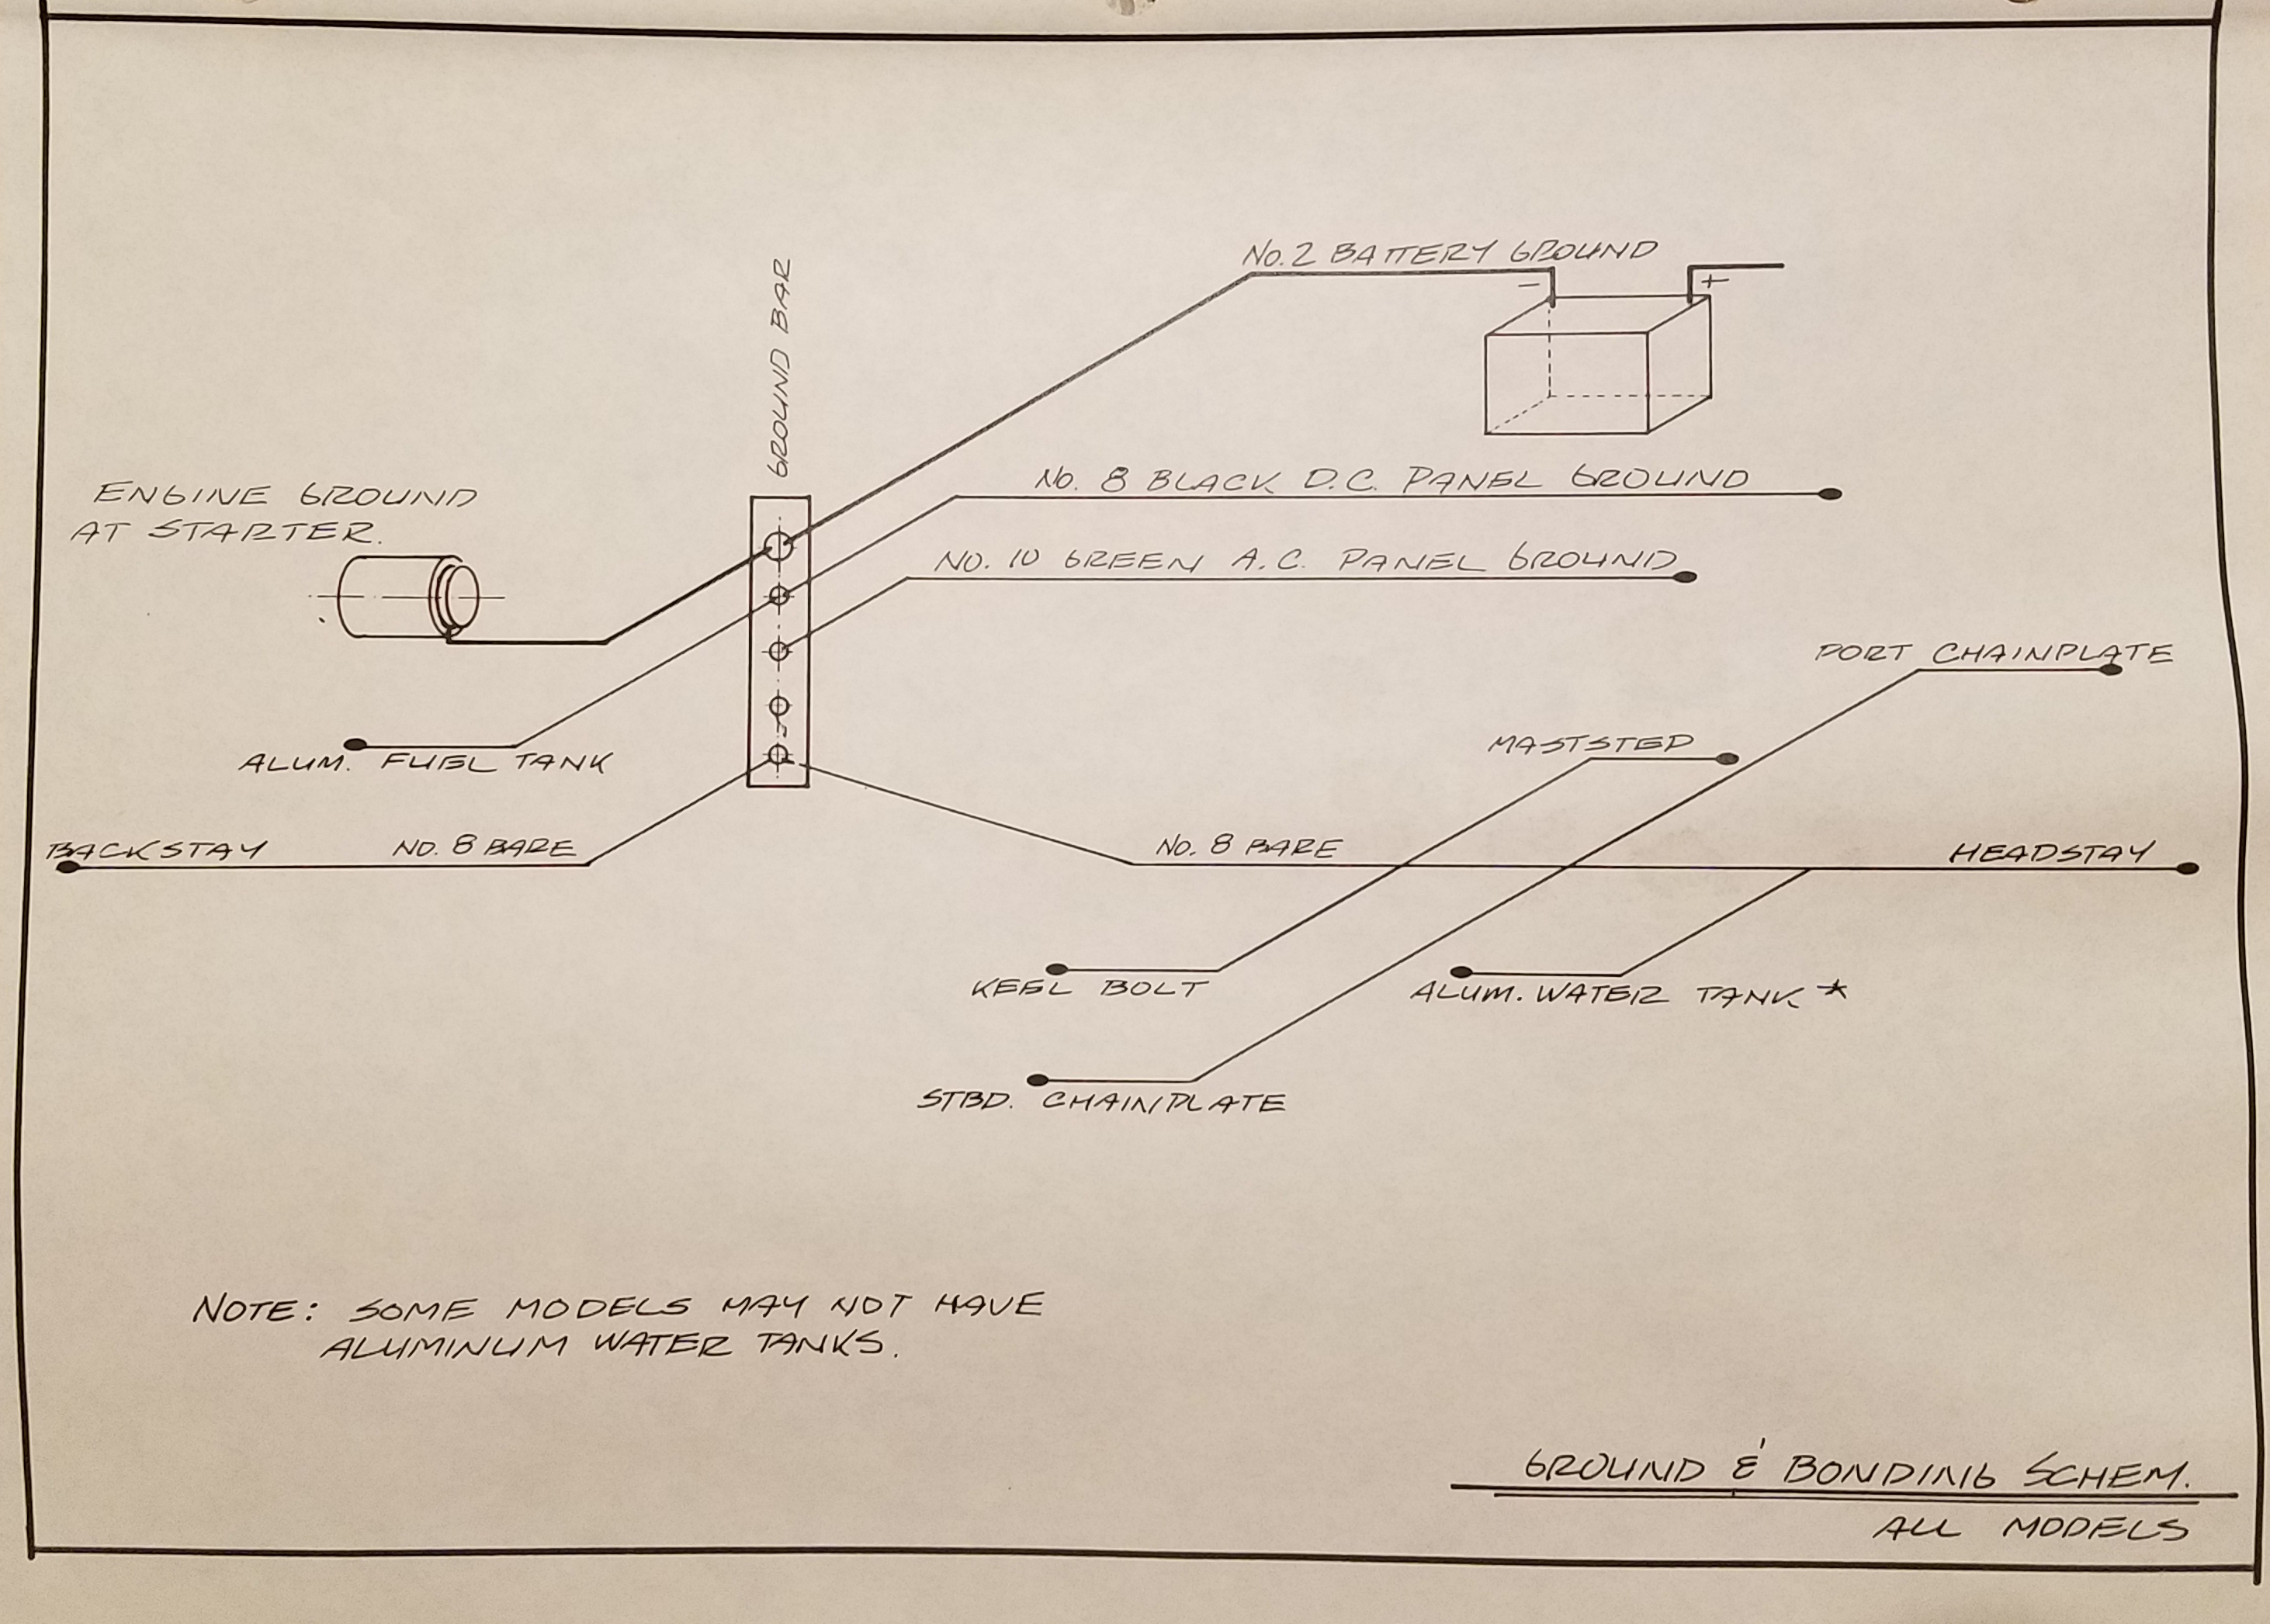 No. 2 BATTERY GROUND
- +
GROUND BAR
No. 8 BLACK D.C. PANEL GROUND
ENGINE GROUND
AT STARTER.
NO. 10 GREEN A.C. PANEL GROUND
PORT CHAINPLATE
MASTSTEP
ALUM. FUEL TANK
BACKSTAY
NO. 8 BARE
No. 8 BARE
HEADSTAY
KEEL BOLT
ALUM. WATER TANK *
STBD. CHAINPLATE
NOTE: SOME MODELS MAY NOT HAVE
ALUMINUM WATER TANKS.
GROUND & BONDING SCHEM.
ALL MODELS